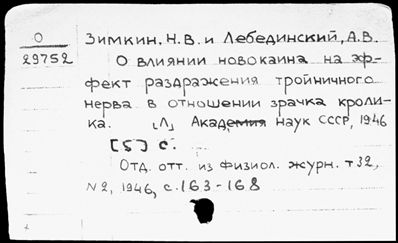 О
29752
Зимкин, Н.В. и Лебединский, А.В.
О влиянии новокаина на эф-
фект раздражения тройничного
нерва в отношении зрачка кроли-
ка. [Л] Академия наук СССР, 1946
[5] с.
Отд. отт. из Физиол. журн. т 32,
N 2, 1946, с. 163-168